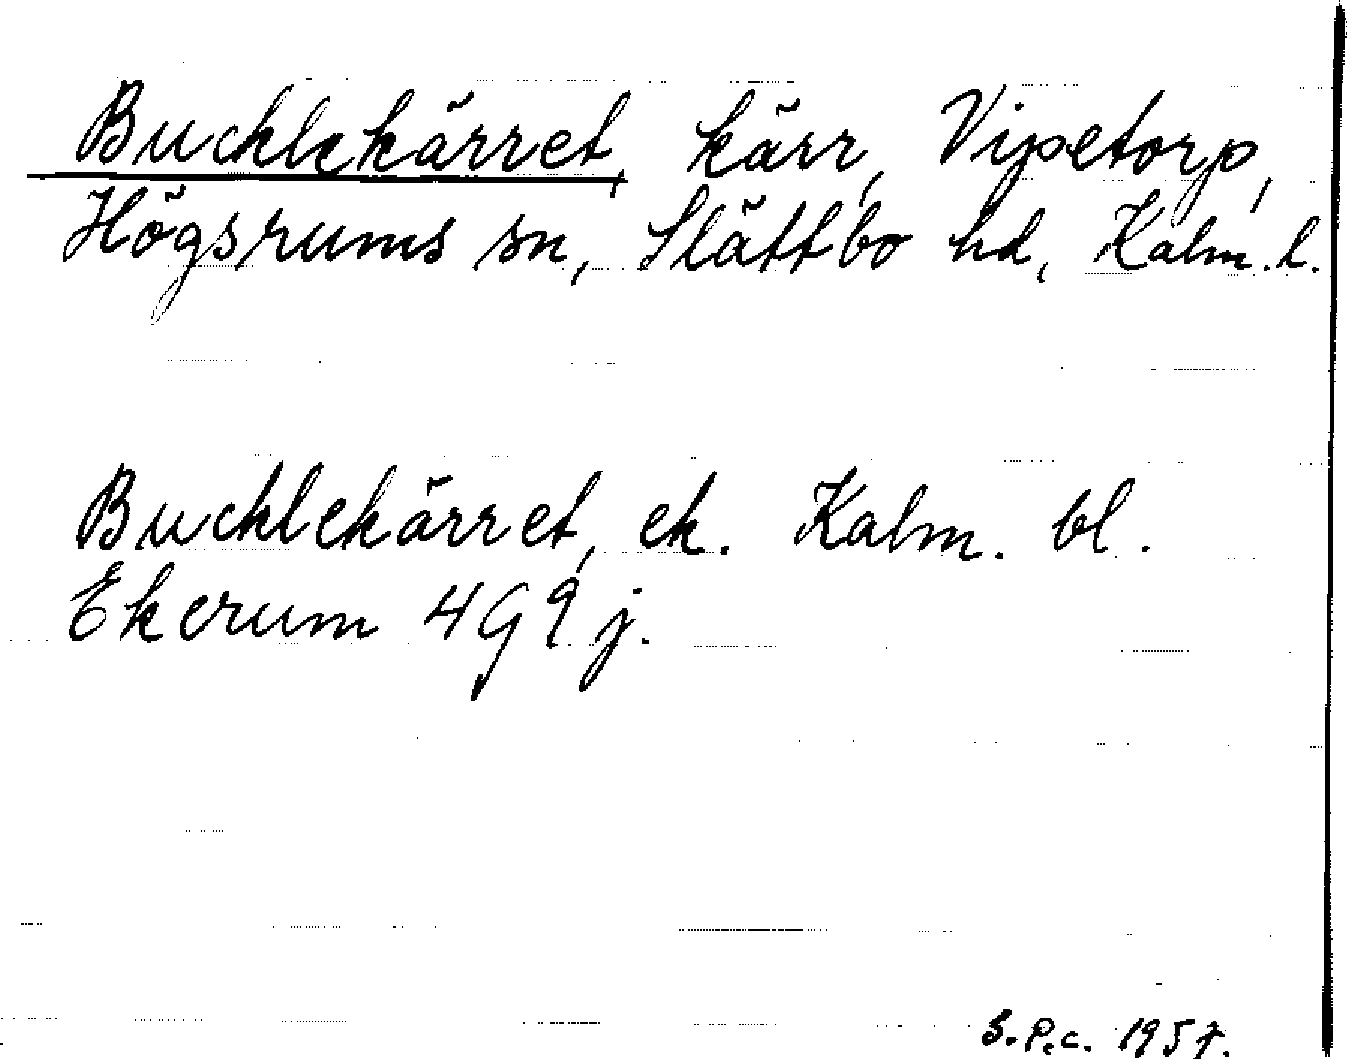 Bucklekärret, kärr, Vipetorp,
Högsrums sn, Slättbo hd, Kalm. l.
Bucklekärret, ek. Kalm. bl.
Ekerum 4G9j.
S.P.c. 1957.